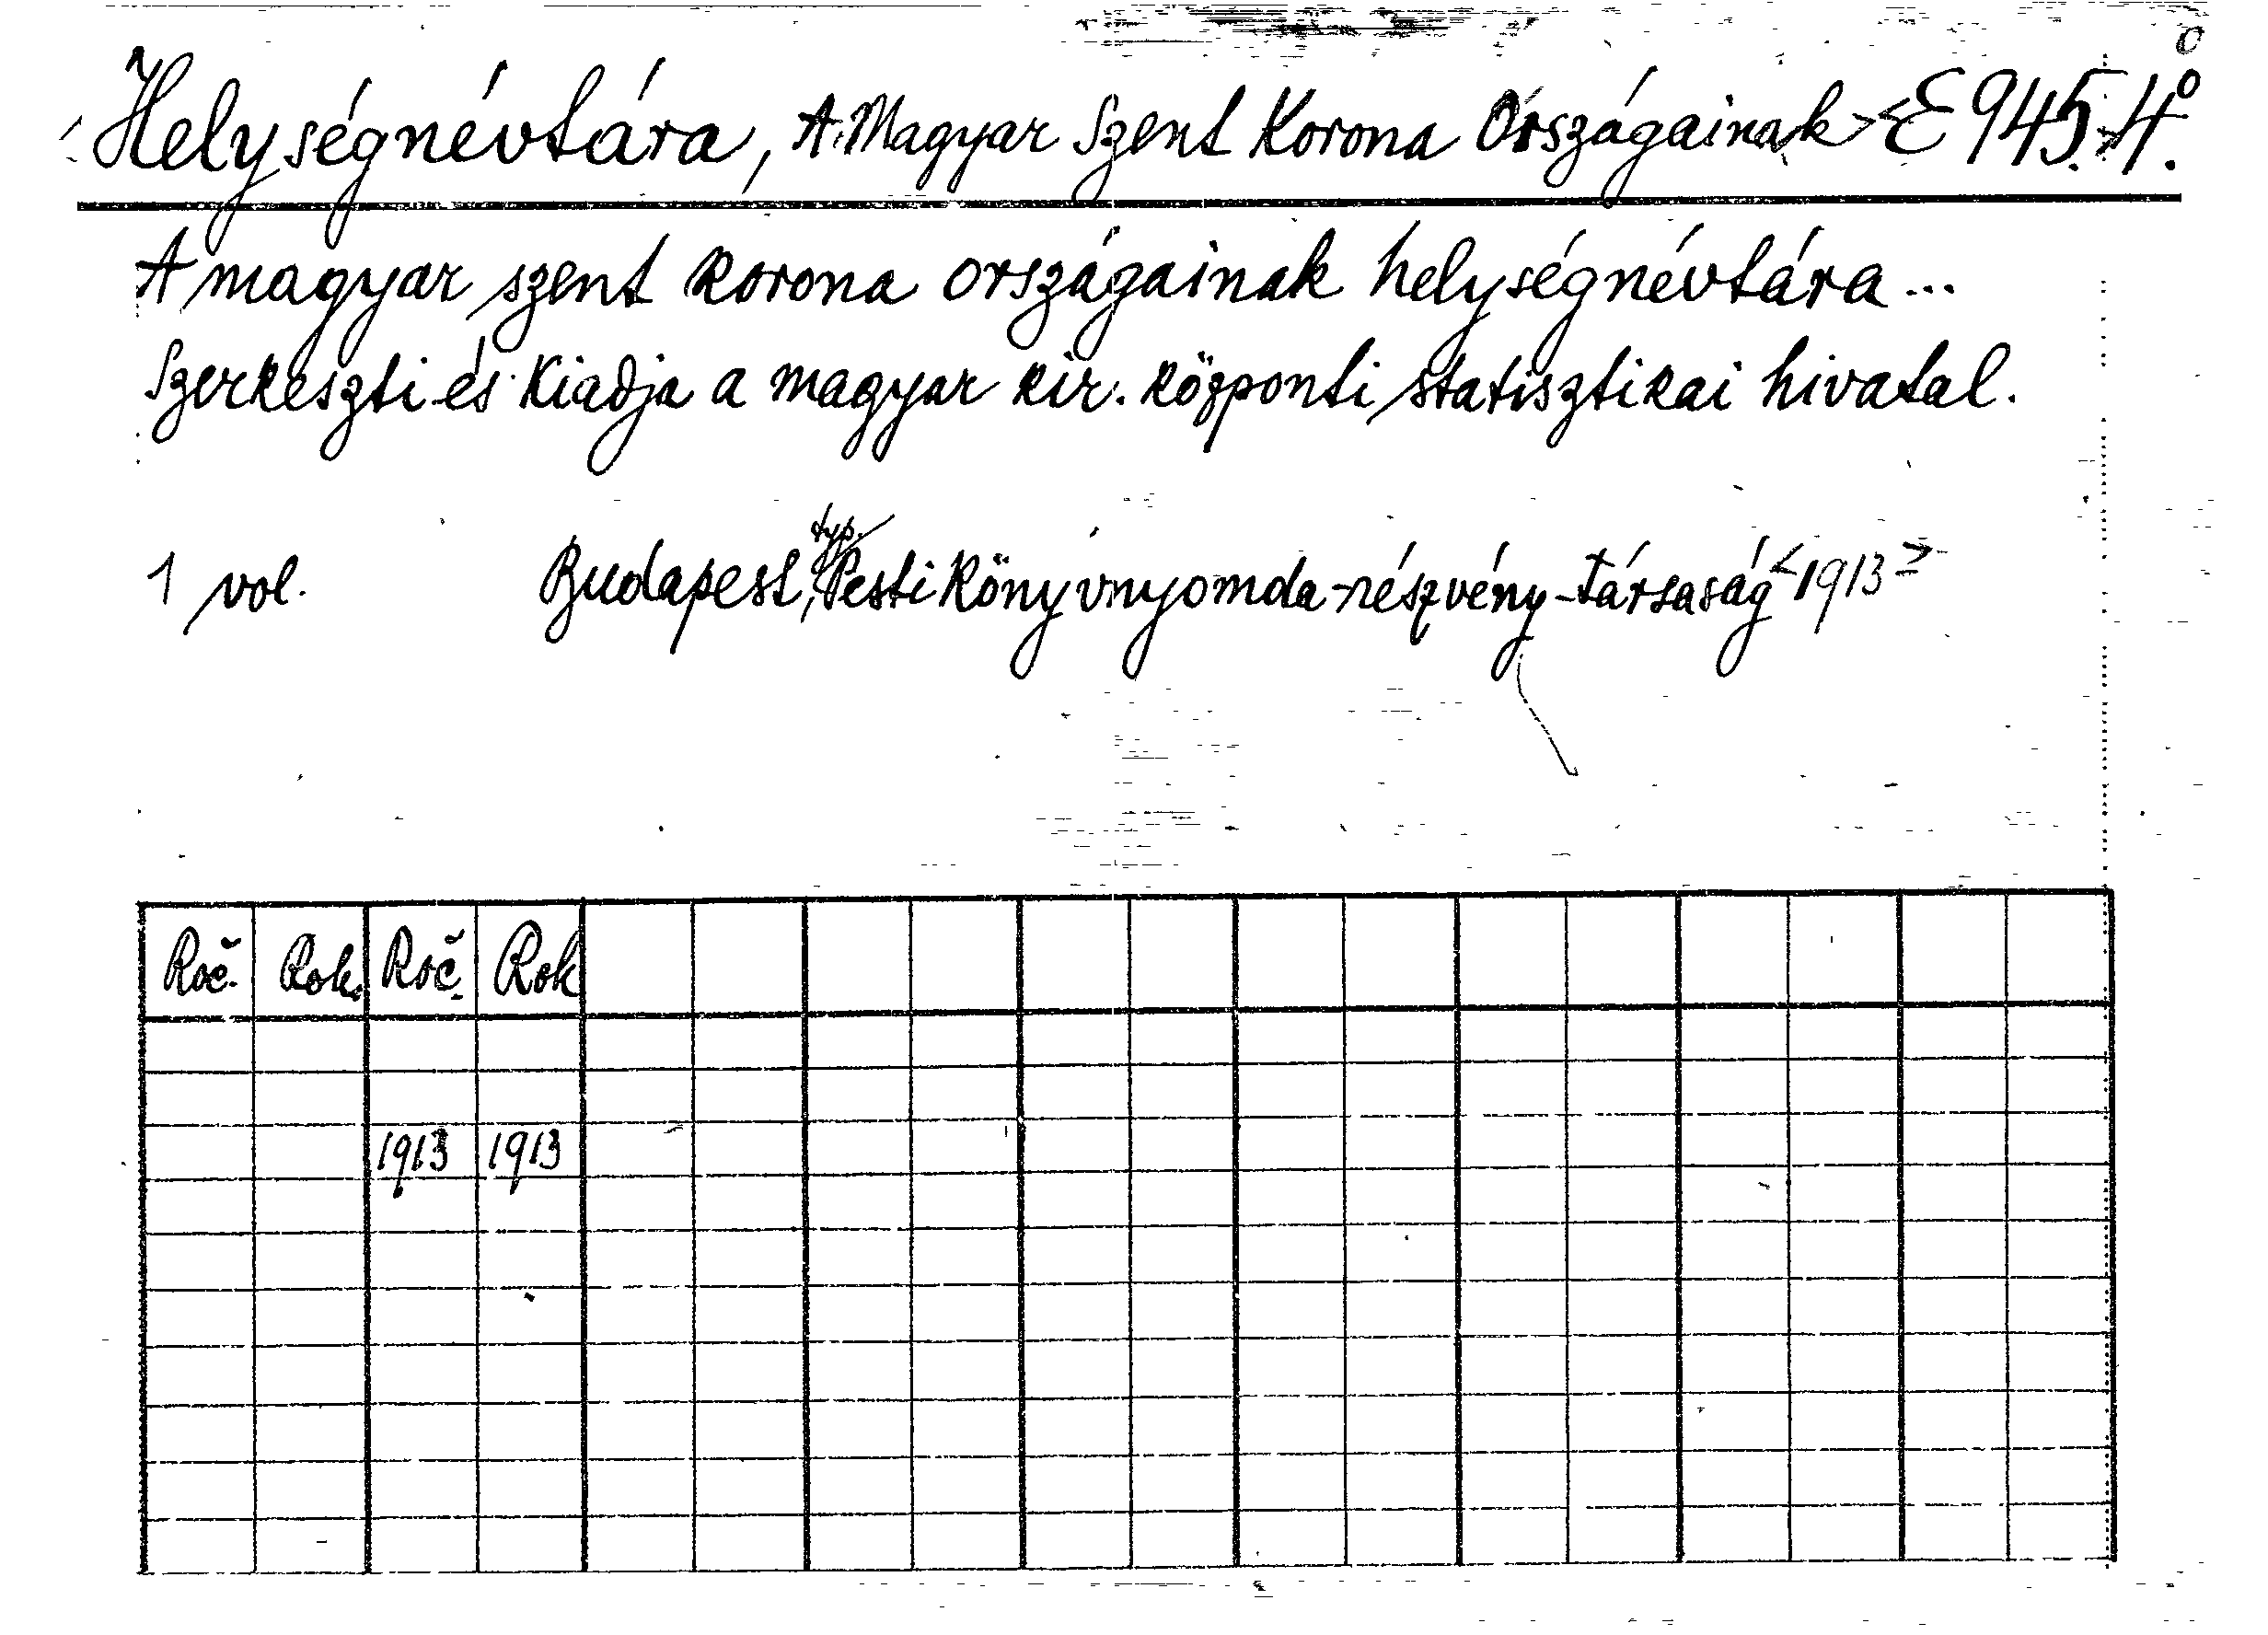 Helységnévtára, A Magyar Szent Korona Országainak <E 945.>4°.
A magyar szent korona országainak helységnévtára ...
Szerkeszti és kiadja a magyar kir. központi statisztikai hivatal.
1 vol. Budapest, typ. Pesti könyvnyomda-részvény-társaság <1913>
Roč. Rok. Roč. Rok
1913 1913